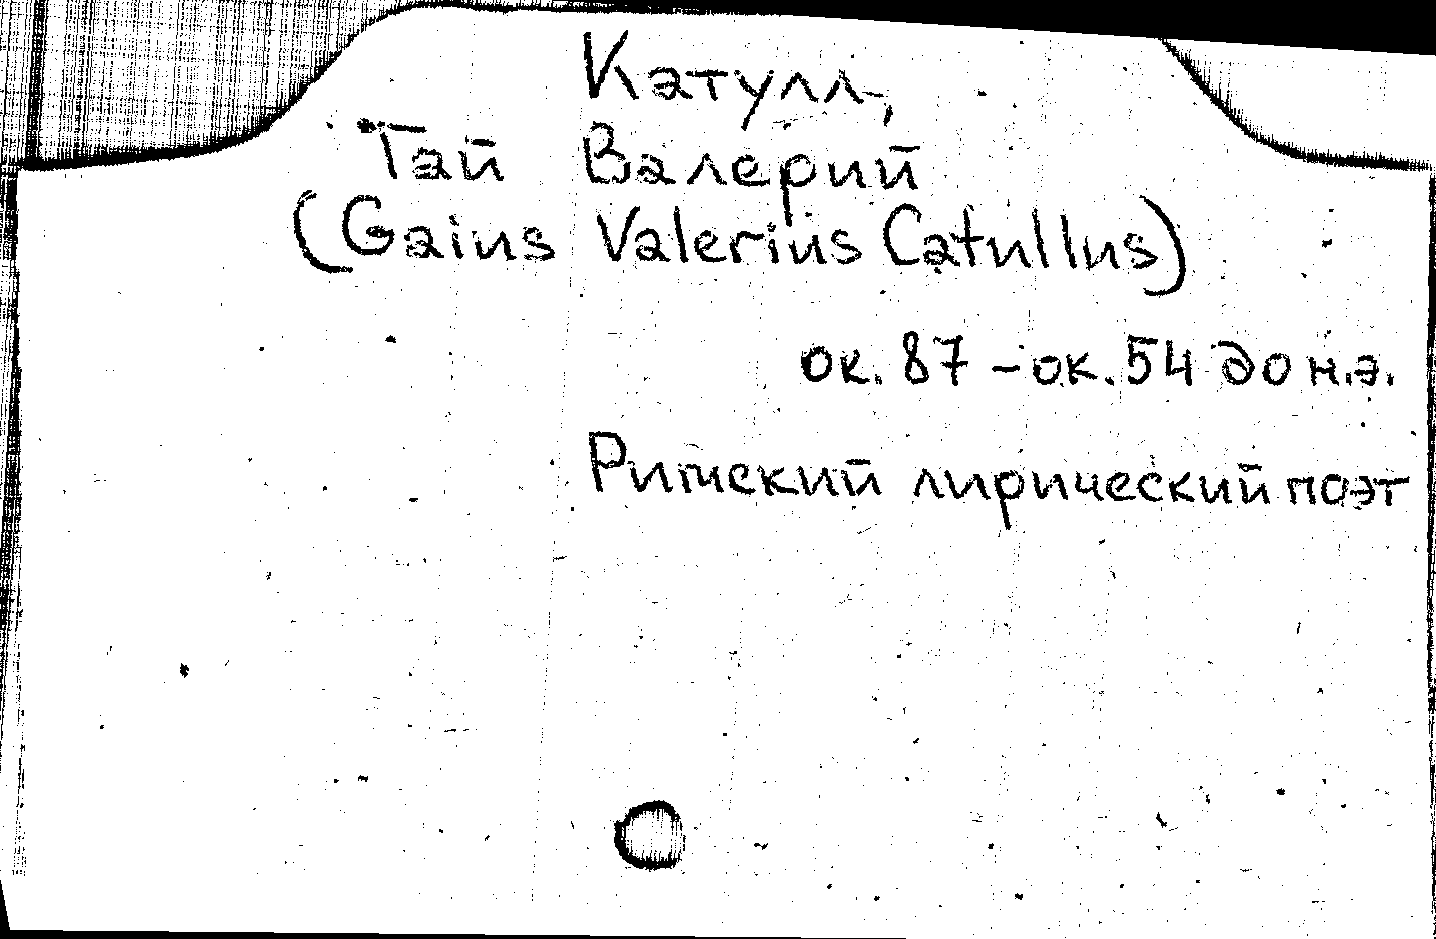 Катулл,
Гай Валерий
(Gaius Valerius Catullus)
ок. 87 – ок. 54 до н.э.
Римский лирический поэт